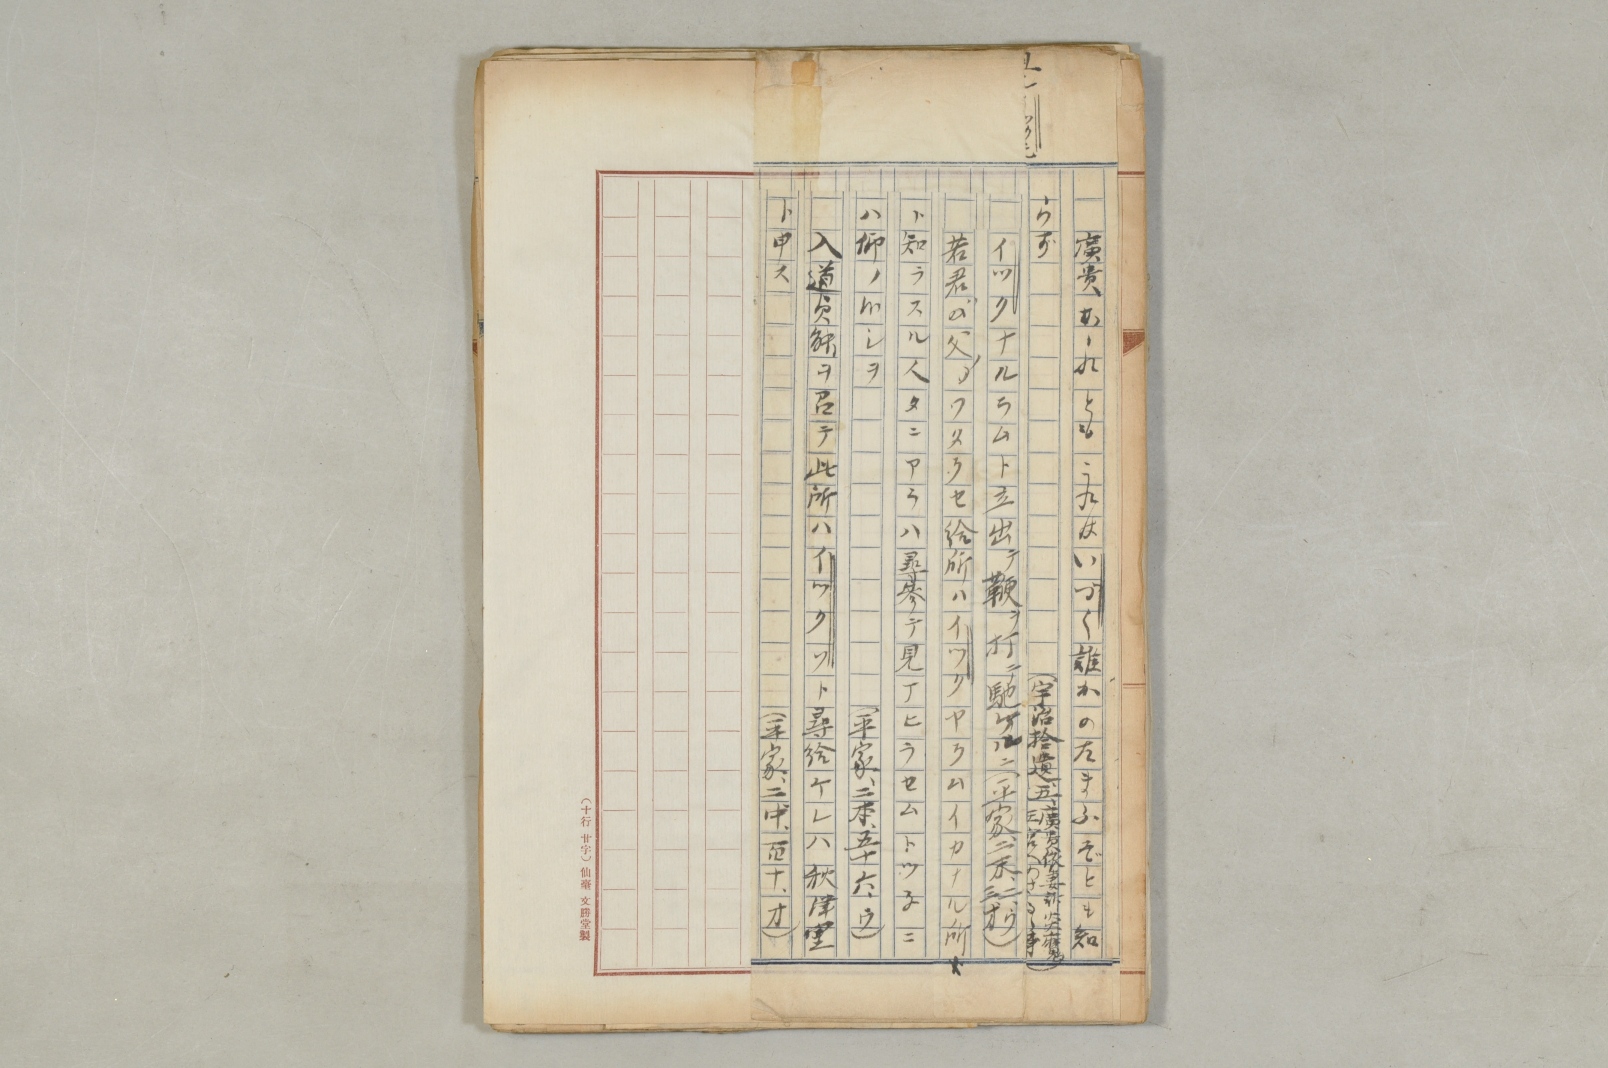 廣貴あれともこれはいづく誰かのたまふぞとも知
らず
(宇治拾遺、五、廣貴依妻訴炎魔
王宮へめさるる事)
イツクナルラムト立出テ鞭ヲ打テ馳ケルニ(平家、二末、二ウ
三オ)
若君の父のワタラセ給所ハイツクヤラムイカナル所
ト知ラスル人タニアラハ尋参テ見ナヒラセムトツ子ニ
ハ仰ノルレヲ
(平家、二本、五十六、ウ)
入道貞能ヲ召テ此所ハイツクソト尋給ケレハ秋津里
ト申ス
(平家、二中、百十、オ)
(十行 廿字) 仙臺 文勝堂製